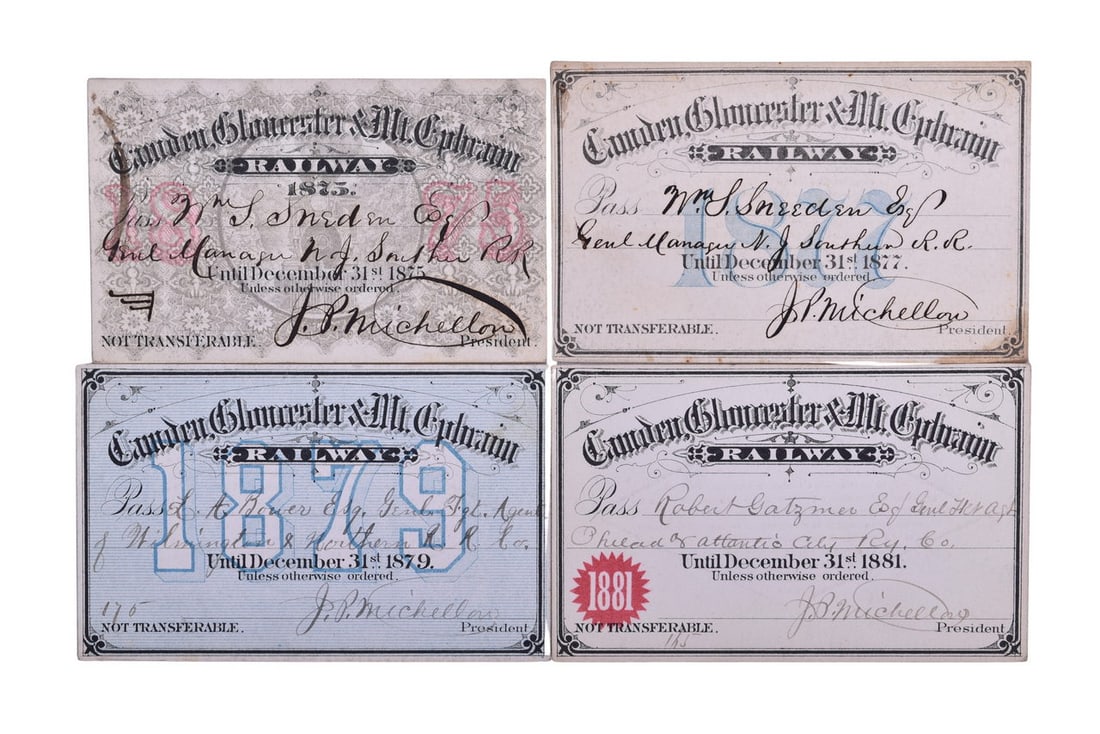 Camden, Gloucester & Mt. Ephraim
RAILWAY
1875.
18 75
Pass Wm S. Sneden Esq
Genl Manager N J. Southern RR
Until December 31st 1875.
Unless otherwise ordered.
J. P. Michellon
NOT TRANSFERABLE. President.
Camden, Gloucester & Mt. Ephraim
RAILWAY
1877
Pass Wm S. Sneeden Esq
Genl Manager N. J Southern R. R.
Until December 31st 1877.
Unless otherwise ordered.
J. P. Michellon
NOT TRANSFERABLE. President.
Camden, Gloucester & Mt. Ephraim
RAILWAY
1879
Pass L. A Bower Esq. Genl. Fgt. Agent
of Wilmington & Northern R. R. Co.
Until December 31st 1879.
Unless otherwise ordered.
175 J. P. Michellon
NOT TRANSFERABLE. President.
Camden, Gloucester & Mt. Ephraim
RAILWAY
Pass Robert Gatzmer Esq Genl Frt Agt
Philad & Atlantic City Ry. Co.
Until December 31st 1881.
Unless otherwise ordered.
1881
J. P. Michellon
NOT TRANSFERABLE. President.